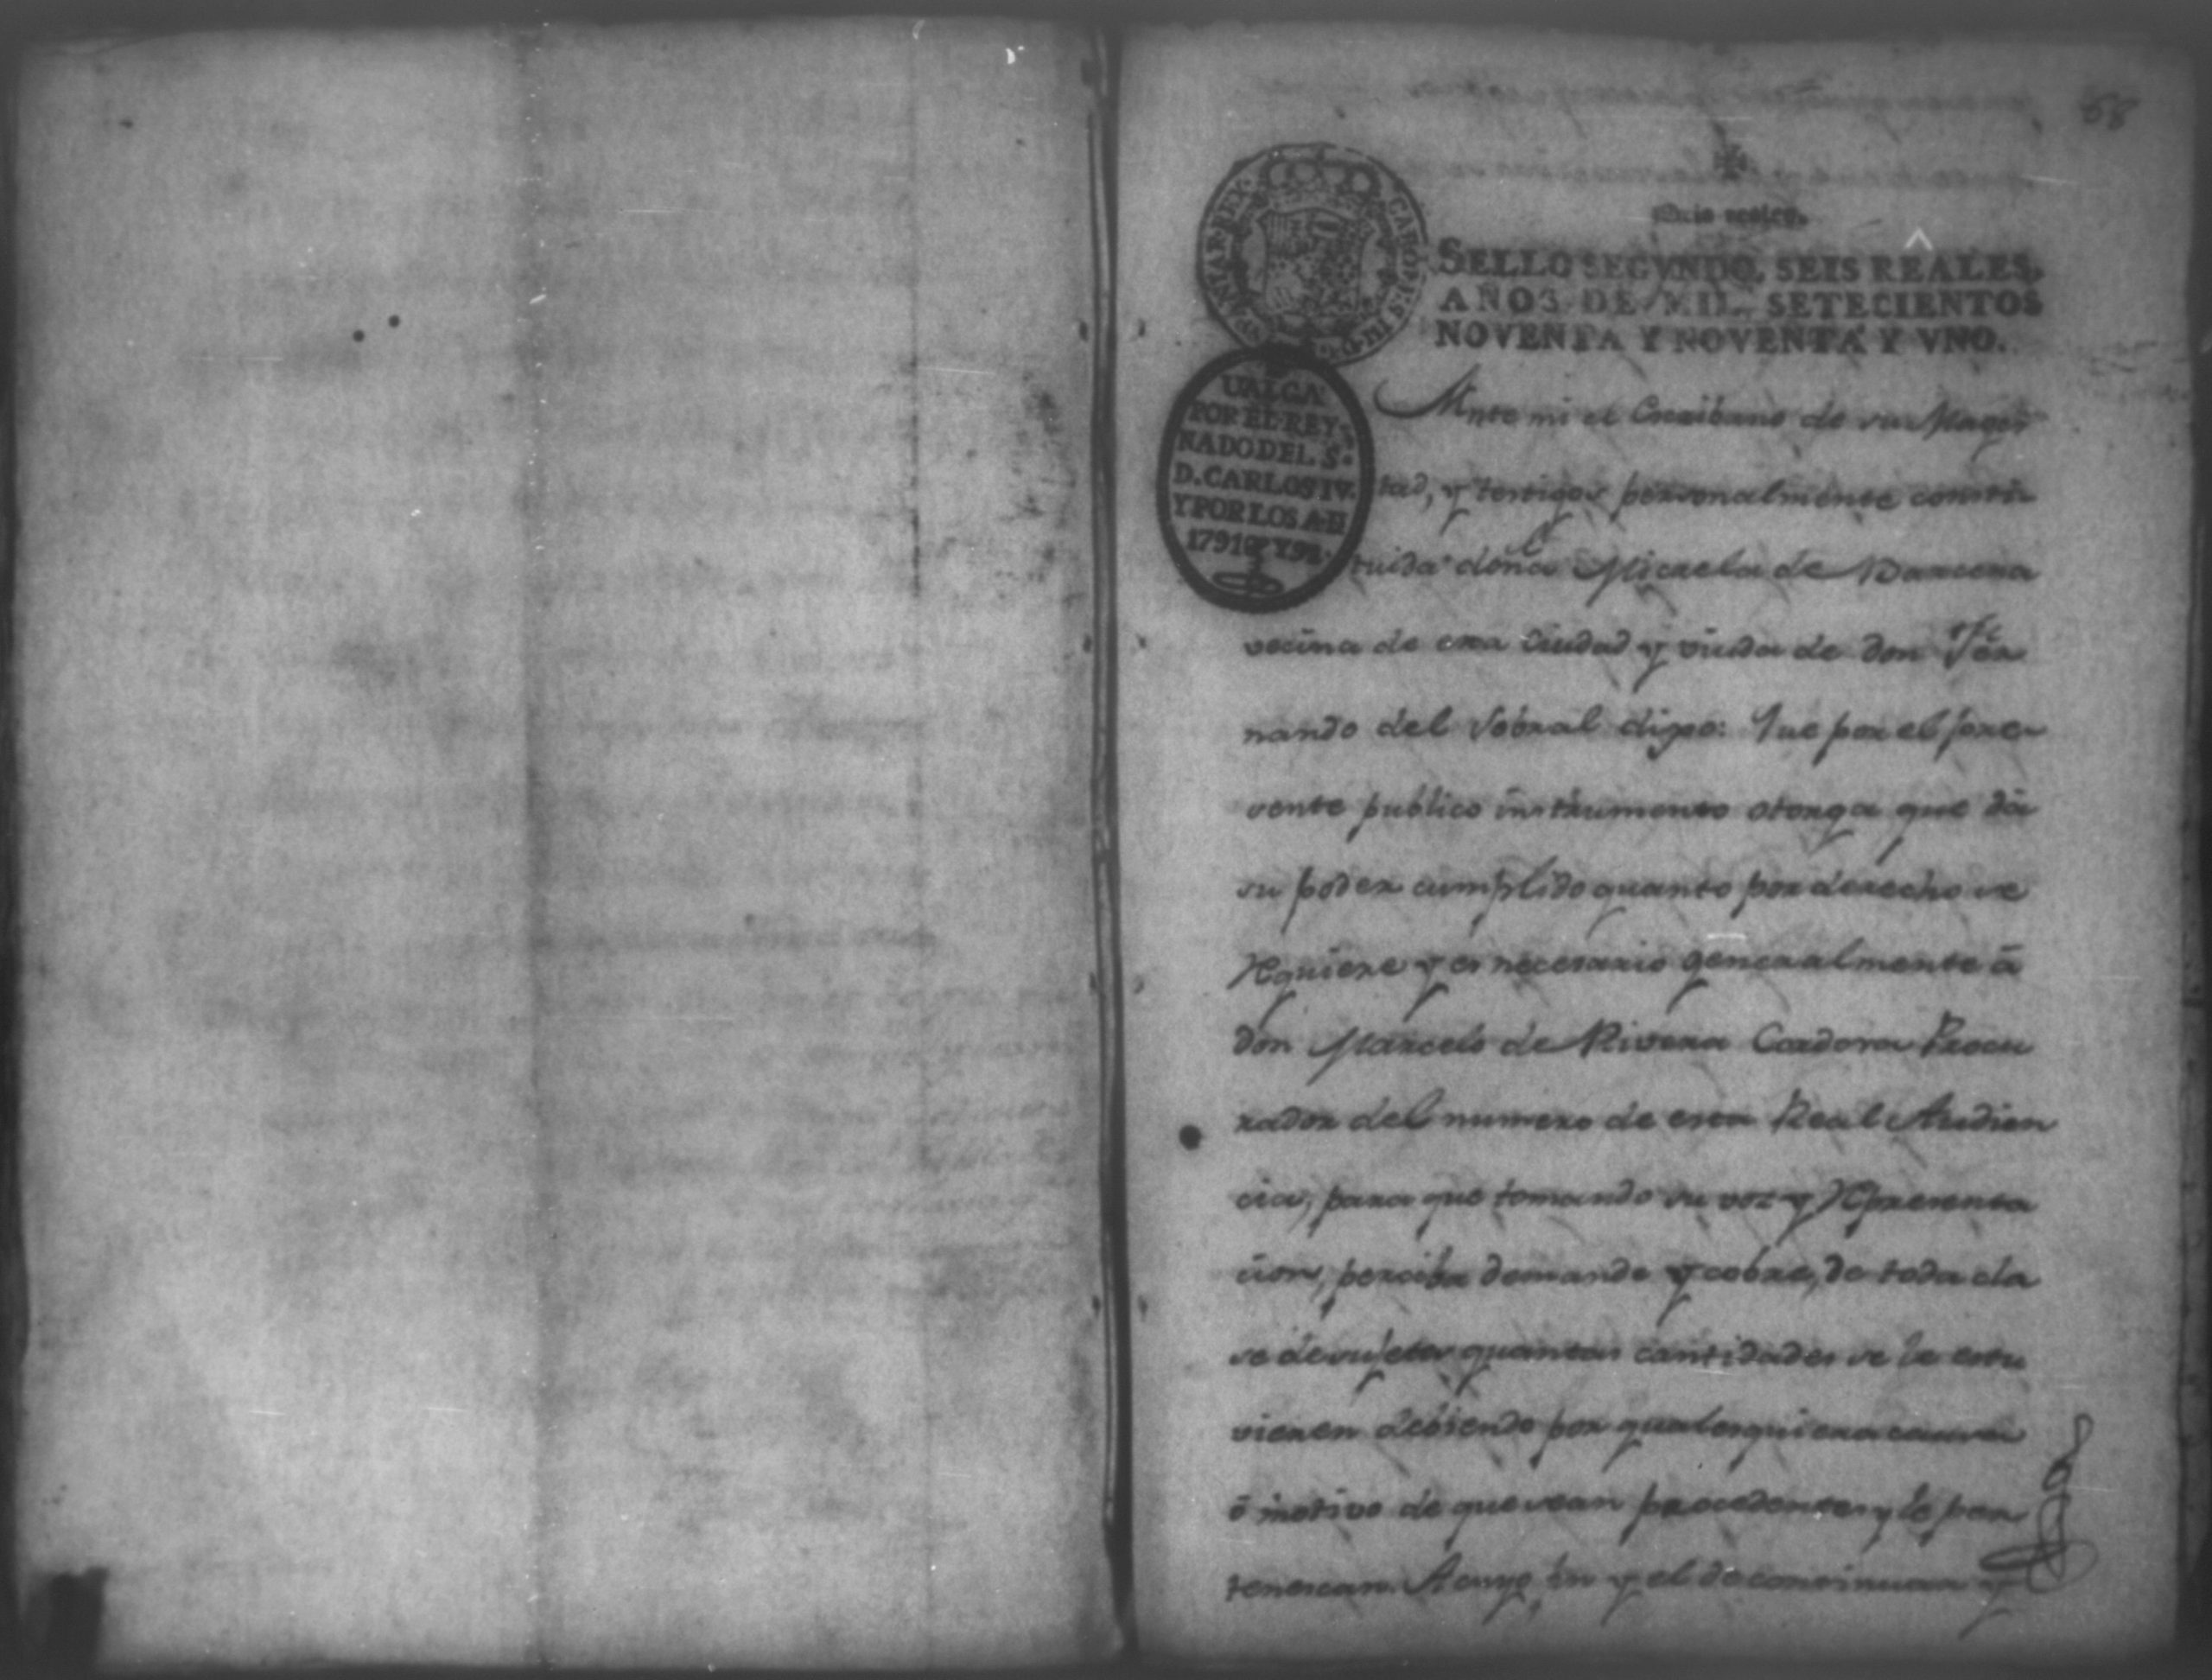 68
Seis reales.
SELLO SEGVNDO, SEIS REALES,
AÑOS DE MIL SETECIENTOS
NOVENTA Y NOVENTA Y VNO.
CAROLUS IIII D. G.
HISPANIAR. REX
UALGA
POR EL REY-
NADO DEL S.
D. CARLOS IV.
Y POR LOS A.
1791 Y 92.
Ante mi el Escribano de su Mages
tad, y testigos personalmente consti
tuida doña Micaela de Barcena
vecina de esta Ciudad y viuda de don Fer
nando del Sobral dijo: Que por el pre
sente publico instrumento otorga que dá
su poder cumplido quanto por derecho se
requiere y es necesario generalmente á
don Marcelo de Rivera Cordova Procu
rador del numero de esta Real Audien
cia, para que tomando su voz y representa
cion, perciba demande y cobre, de toda cla
se de sujetos quantas cantidades se le estu
vieren debiendo por qualesquiera causa
ó motivo de que sean procedentes y le per
tenescan. A cuyo fin y el de continuar y